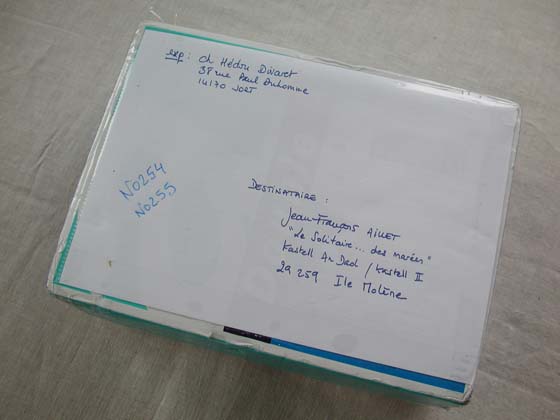 exp : Ch Hédou Divaret
38 rue Paul Duhomme
14170 JORT
N0254
N0255
DESTINATAIRE :
Jean-François AILLET
"Le Solitaire... des marées"
Kastell An Dad / Kastell II
29 259 Ile Molène